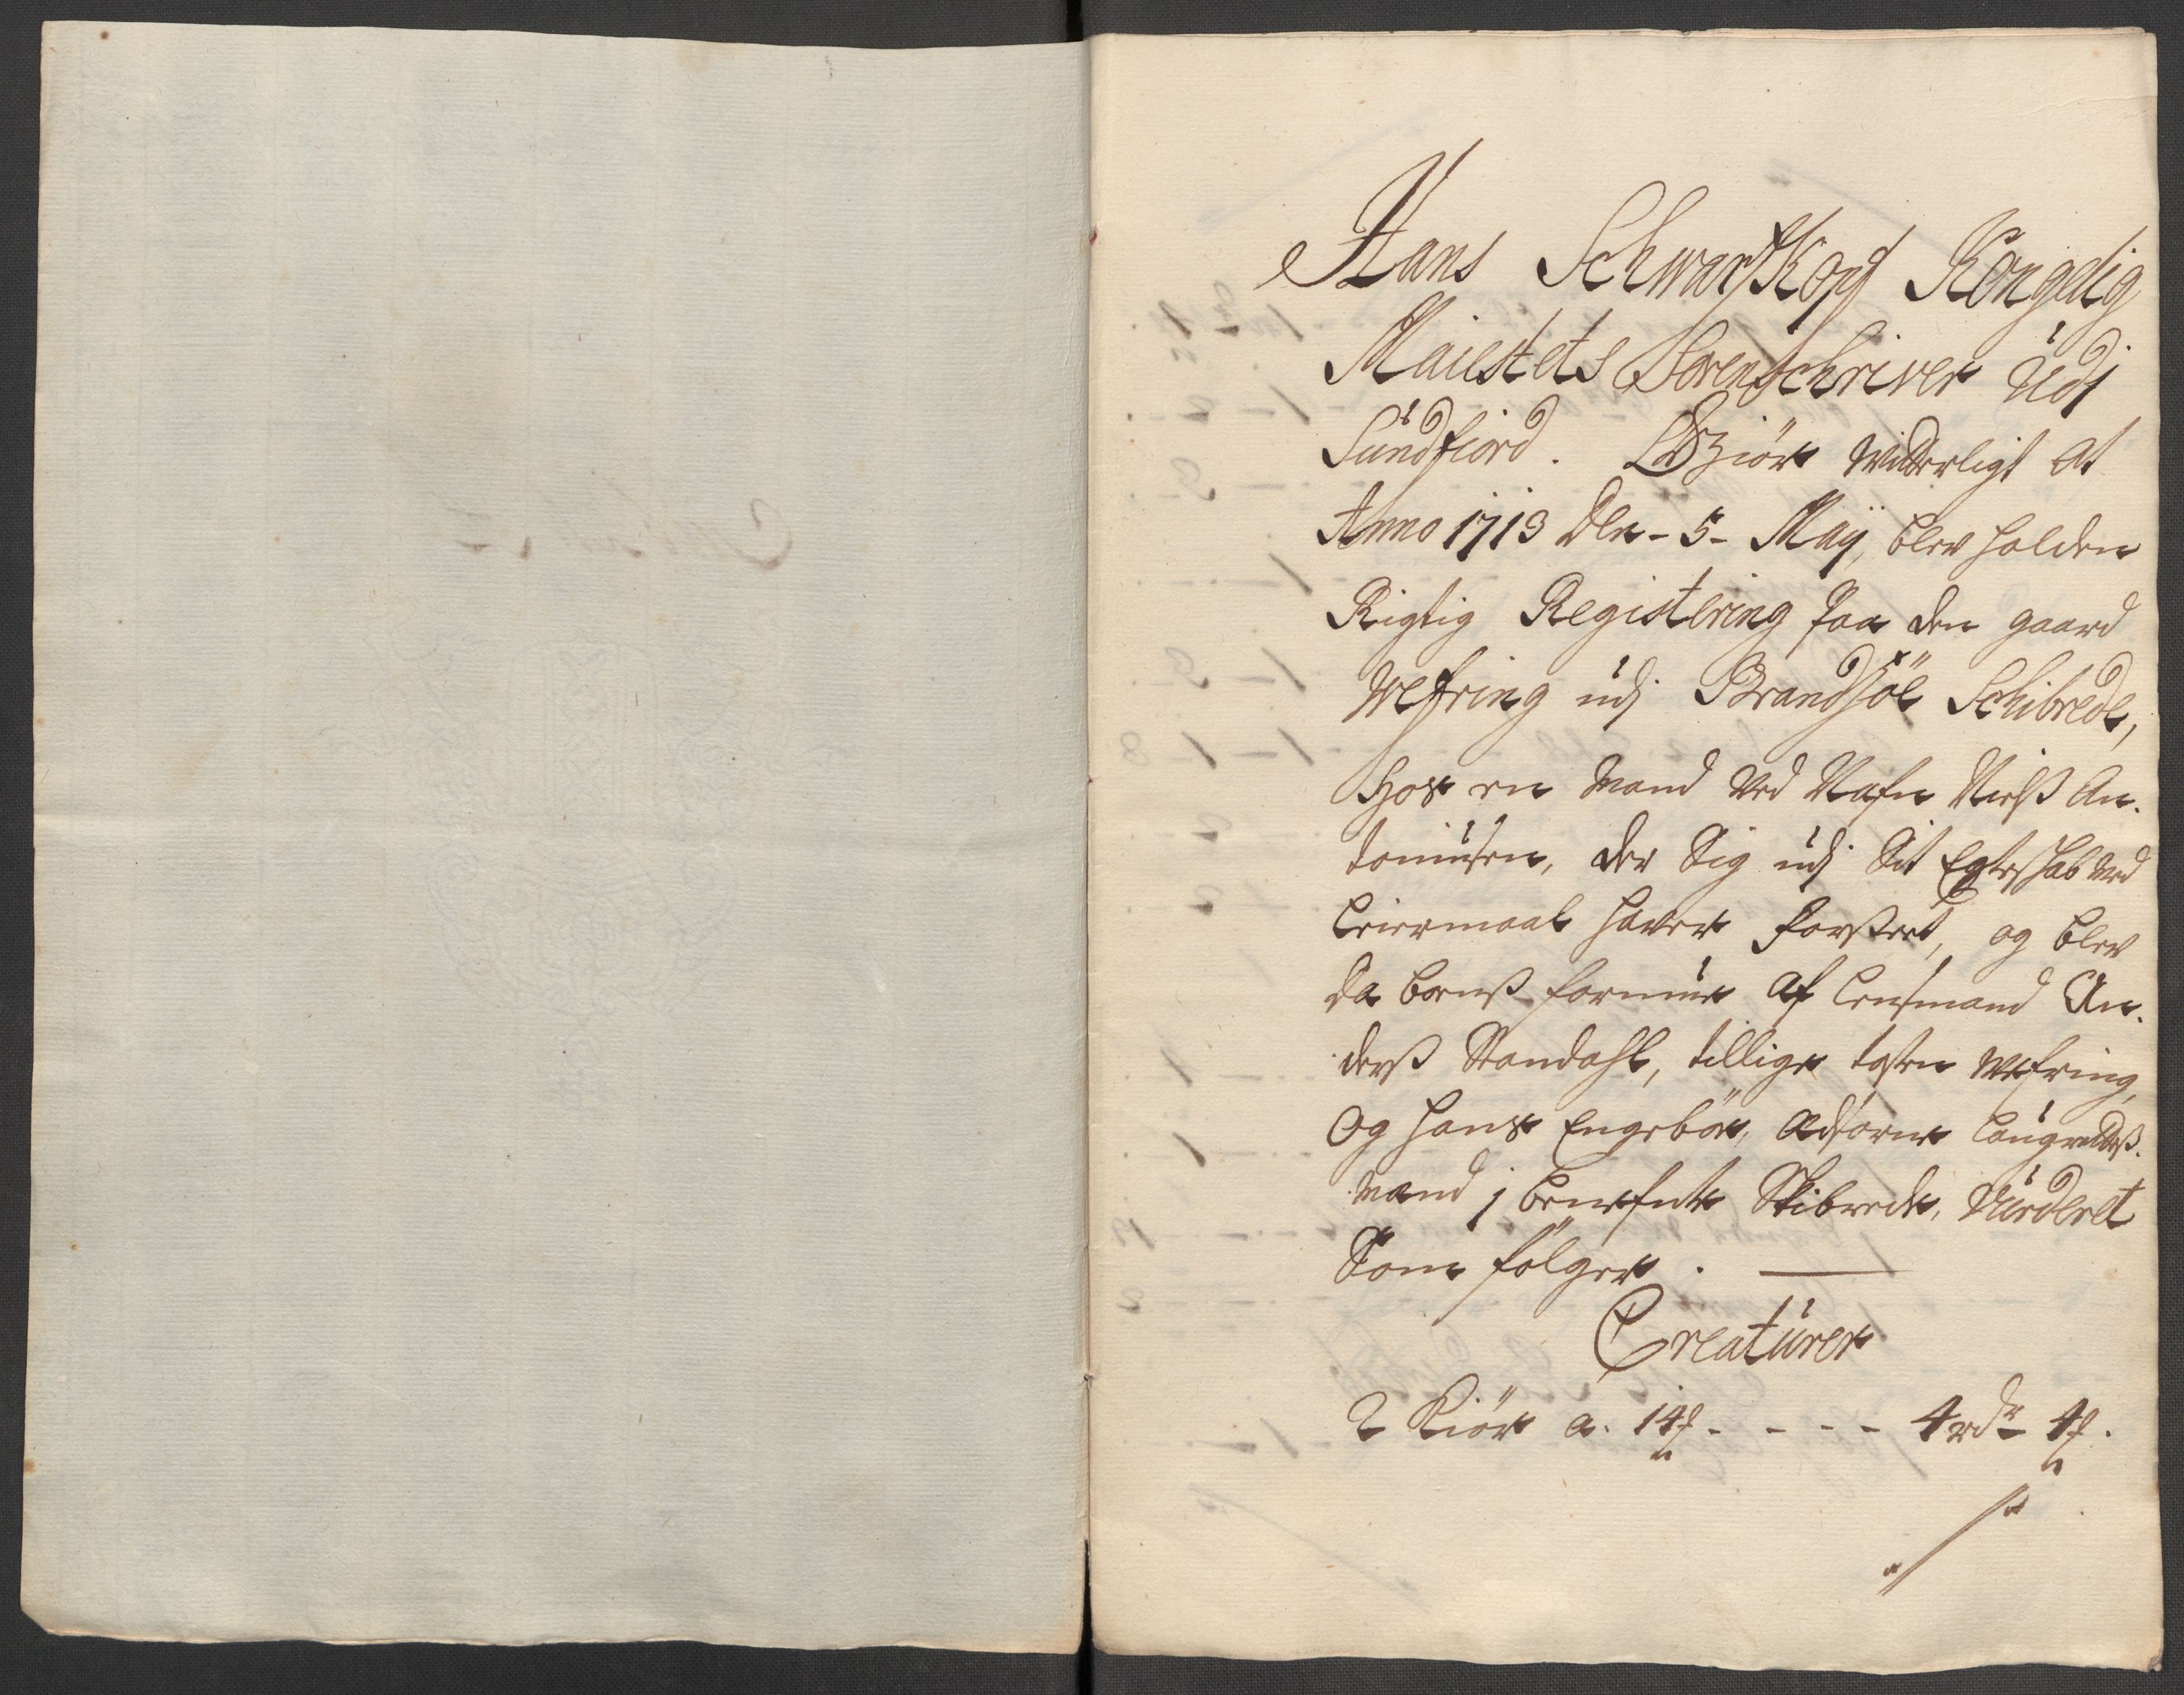 Hans Schwartkopf Kongelig
Maiestets Sorenschriver Udj
Sundfiord. Giör Witterligt At
Anno 1713 den - 5 - Maÿ, blev holden
Rigtig Registering paa den gaard
Wefring udj Brandsöe Schibrede,
Hos en Mand ved Nafn Nielß An-
toniusen, der Sig udj Sit Egteschab med
Leiermaal haver forseet, og blev
da formue af Lensmand An-
derß Standahl, tillige Wefring,
Og Hans Engeböe, Laugretteß-
mand j benefnte Skibrede, Vurderet
Som fölger.
Creaturer
2 Kiör a. 14 - - - - 4 rdr 4